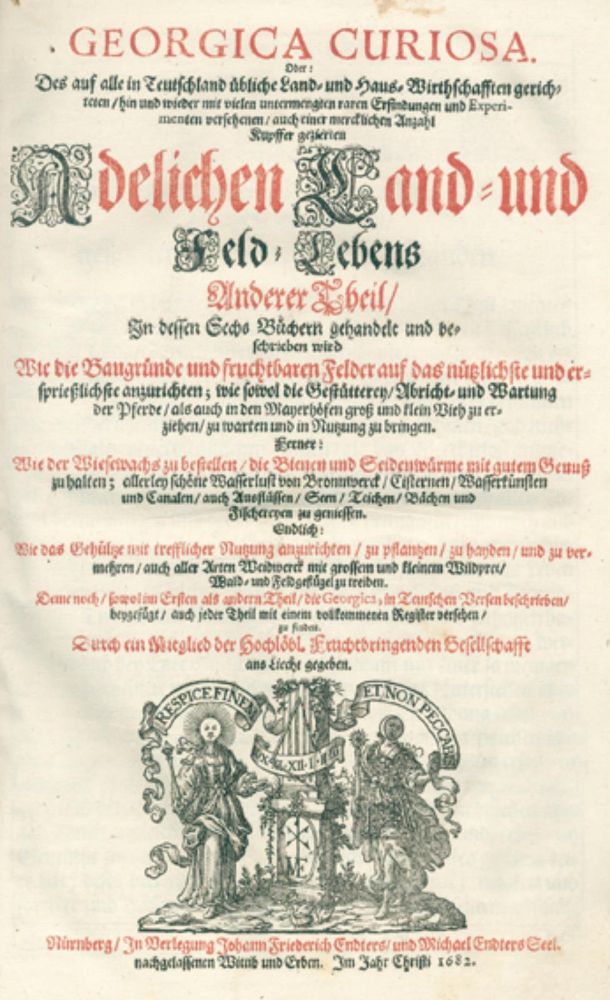 GEORGICA CURIOSA.
Oder:
Des auf alle in Teutschland übliche Land- und Haus-Wirthschafften gerich-
teten/ hin und wieder mit vielen untermengten raren Erfindungen und Experi-
menten versehenen/ auch einer mercklichen Anzahl
Kupffer gezierten
Adelichen Land- und
Feld-Lebens
Anderer Theil/
In dessen Sechs Büchern gehandelt und be-
schrieben wird
Wie die Baugründe und fruchtbaren Felder auf das nützlichste und er-
sprießlichste anzurichten; wie sowol die Gestütterey/ Abricht- und Wartung
der Pferde/ als auch in den Mayerhöfen groß und klein Vieh zu er-
ziehen/ zu warten und in Nutzung zu bringen.
Ferner:
Wie der Wiesewachs zu bestellen/ die Bienen und Seidenwürme mit gutem Genuß
zu halten; allerley schöne Wasserlust von Bronnwerck/ Cisternen/ Wasserkünsten
und Canalen/ auch Ausflüssen/ Seen/ Teichen/ Bächen und
Fischereyen zu geniessen.
Endlich:
Wie das Gehültze mit trefflicher Nutzung anzurichten/ zu pflantzen/ zu hayden/ und zu ver-
mehren/ auch aller Arten Weidwerck mit grossem und kleinem Wildpret/
Wald- und Feldgeflügel zu treiben.
Deme noch/ sowol im Ersten als andern Theil/ die Georgica, in Teutschen Versen beschrieben/
beygefügt/ auch jeder Theil mit einem vollkommenen Register versehen/
zu finden.
Durch ein Mitglied der Hochlöbl. Fruchtbringenden Gesellschafft
ans Liecht gegeben.
RESPICE FINEM
ET NON PECCABIS
X·XI·XII·I·II·III
WE
Nürnberg/ In Verlegung Johann Friederich Endters/ und Michael Endters Seel.
nachgelassenen Wittib und Erben. Im Jahr Christi 1682.